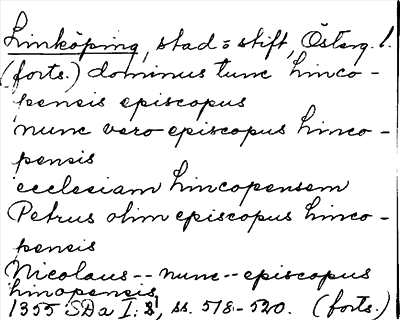 Linköping, stad = stift, Österg. l.
(forts.) dominus tunc linco-
pensis episcopus
nunc vero episcopus linco-
pensis
ecclesiam lincopensem
Petrus olim episcopus linco-
pensis
Nicolaus -- nunc -- episcopus
lincopensis
1355 SDa I: 1, ss. 518-520. (forts.)